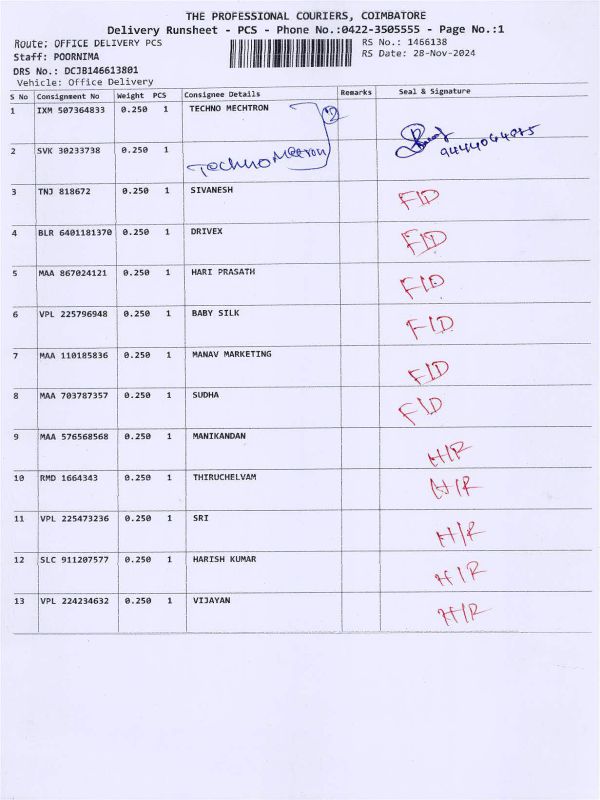 THE PROFESSIONAL COURIERS, COIMBATORE
Delivery Runsheet - PCS - Phone No.:0422-3505555 - Page No.:1
Route; OFFICE DELIVERY PCS RS No.: 1466138
Staff: POORNIMA RS Date: 28-Nov-2024
DRS No.: DCJB146613801
Vehicle: Office Delivery
S No Consignment No Weight PCS Consignee Details Remarks Seal & Signature
1 IXM 507364833 0.250 1 TECHNO MECHTRON 2
9444064075
2 SVK 30233738 0.250 1 Techno Mectron
3 TNJ 818672 0.250 1 SIVANESH F/D
4 BLR 6401181370 0.250 1 DRIVEX F/D
5 MAA 867024121 0.250 1 HARI PRASATH F/D
6 VPL 225796948 0.250 1 BABY SILK F/D
7 MAA 110185836 0.250 1 MANAV MARKETING F/D
8 MAA 703787357 0.250 1 SUDHA F/D
9 MAA 576568568 0.250 1 MANIKANDAN H/R
10 RMD 1664343 0.250 1 THIRUCHELVAM H/R
11 VPL 225473236 0.250 1 SRI H/R
12 SLC 911207577 0.250 1 HARISH KUMAR H/R
13 VPL 224234632 0.250 1 VIJAYAN H/R